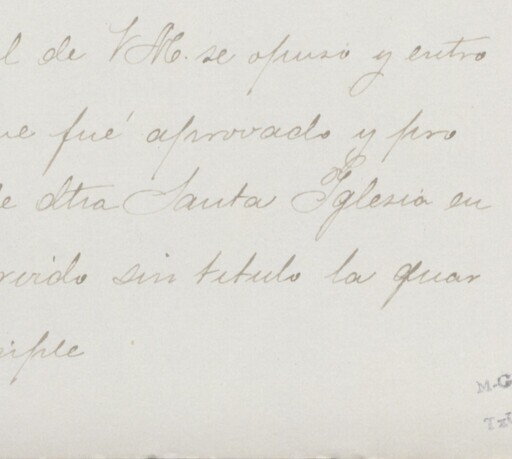 l de VM. se opuso y entro
ue fué aprovado y pro
e dtra Santa Yglesia en
rvido sin titulo la quar
siple
M-G